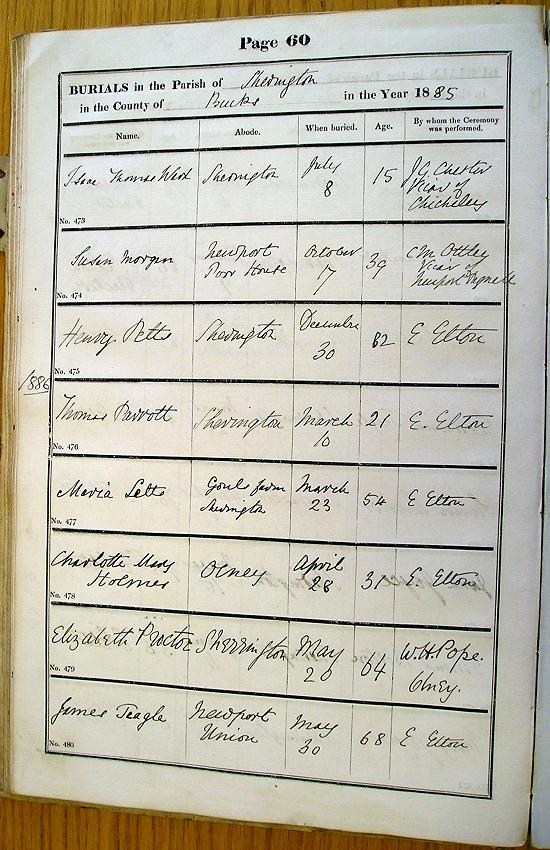 Page 60
BURIALS in the Parish of Sherington
in the County of Bucks in the Year 1885
Name. Abode. When buried. Age. By whom the Ceremony was performed.
Isaac Thomas Sherington July 8 15 J.G. Chester Vicar of Chicheley
No. 473
Susan Morgan Newport Poor House October 17 39 C M Ottley Vicar of Newport Pagnell
No. 474
Henry Petts Sherington December 30 82 E Elton
No. 475
1886
Thomas Parrott Sherington March 10 21 E. Elton
No. 476
Maria Setts Farm Sherington March 23 54 E Elton
No. 477
Charlotte Mary Holmes Olney April 28 31 E Elton
No. 478
Elizabeth Proctor Sherrington May 20 64 W.H. Pope. Olney.
No. 479
James Teagle Newport Union May 30 68 E Elton
No. 480